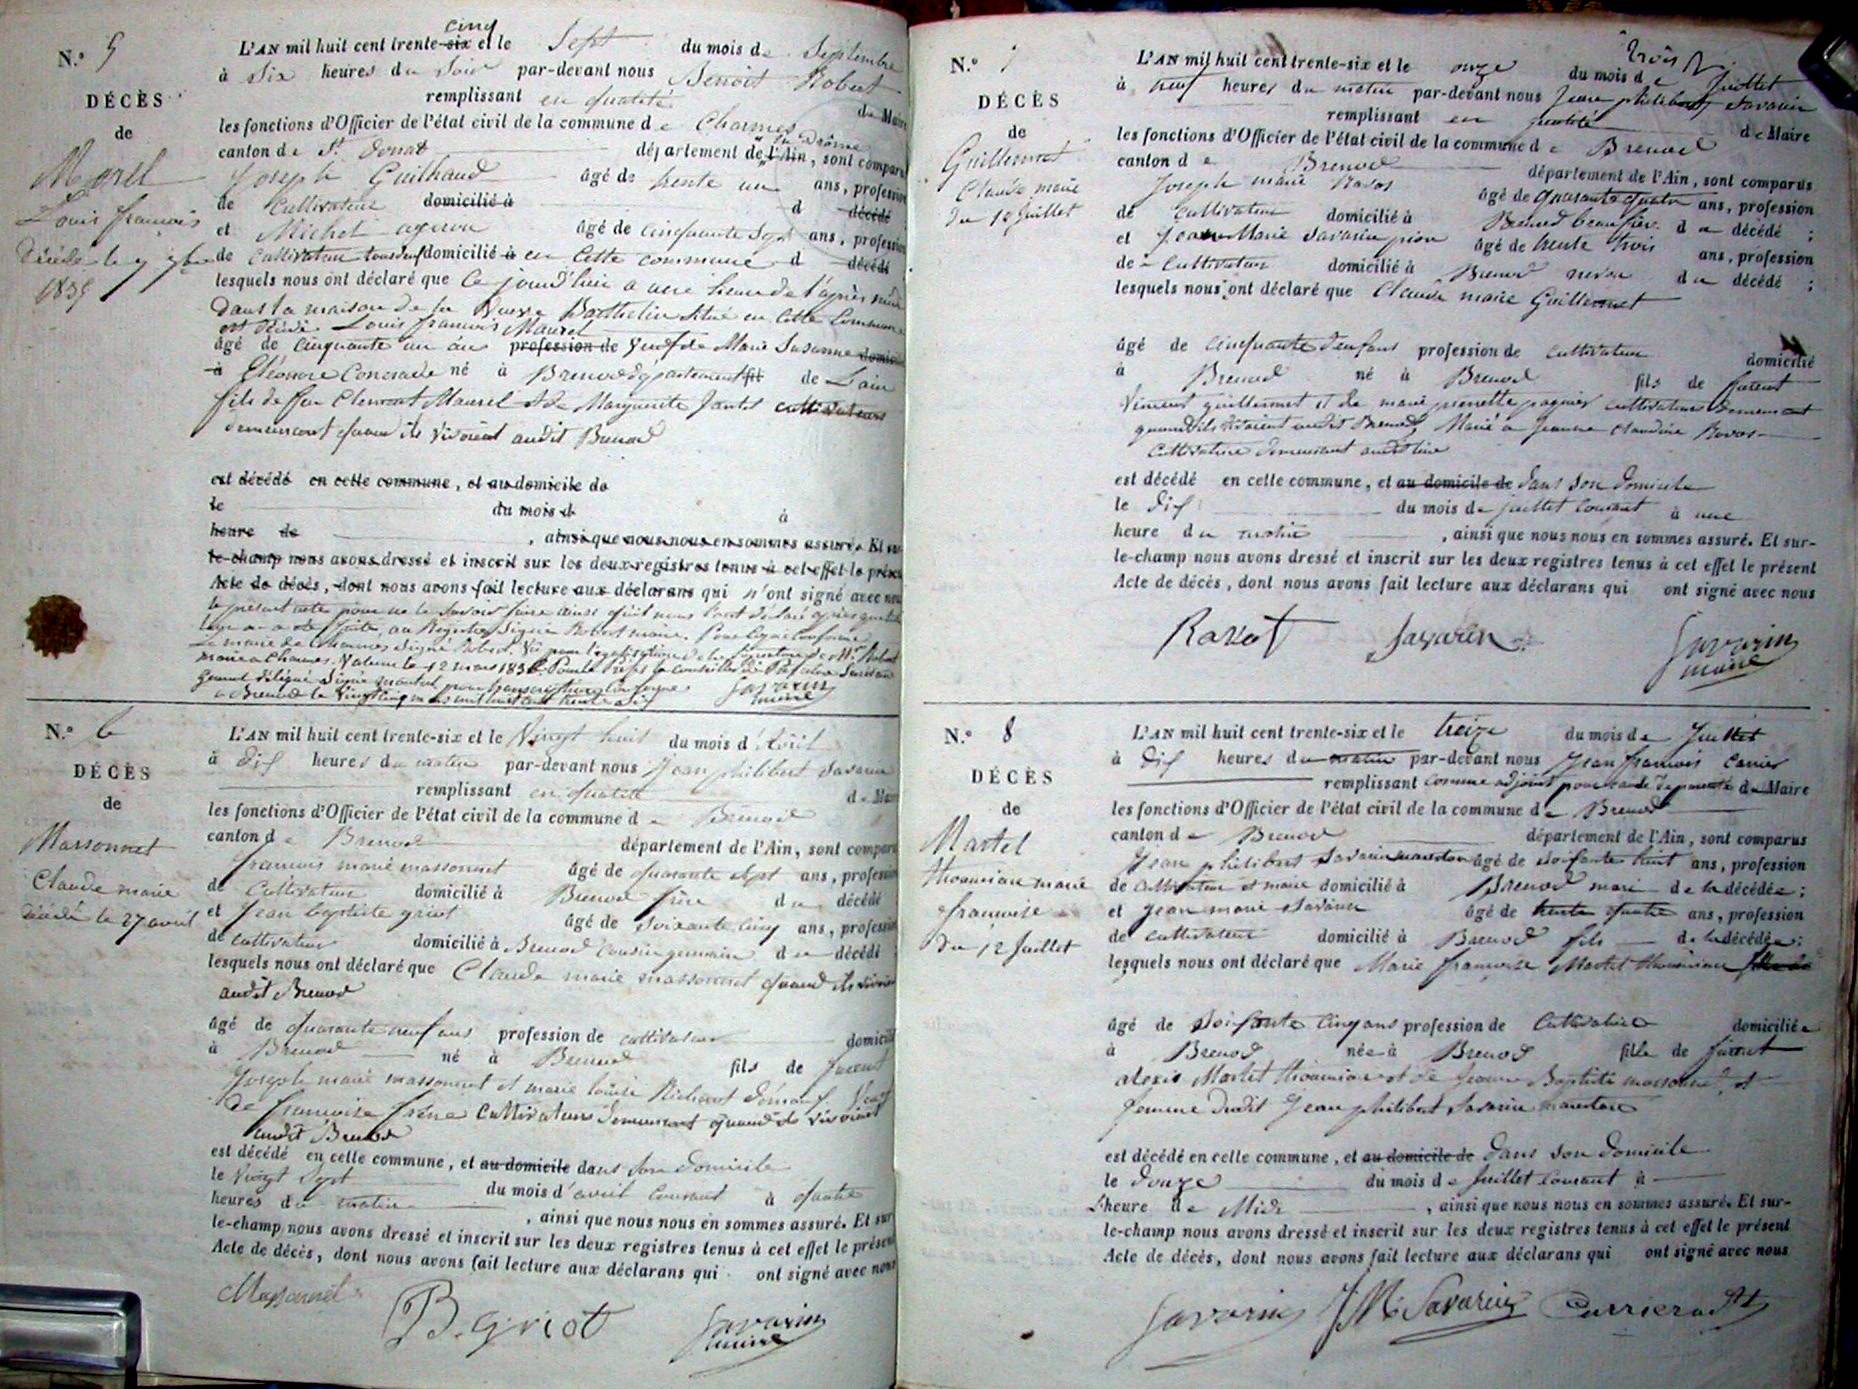 N.º 5
DÉCÈS
de
Morel
Louis françois
décédé le 7 7bre
1835
cinq
L'AN mil huit cent trente-six et le Sept du mois de Septembre
à Six heures du Soir par-devant nous Benoit Robert
remplissant en qualité de Maire
les fonctions d'Officier de l'état civil de la commune de Charmes
canton de St Donat département de l'Ain, sont comparus
la Drôme
Joseph Guilhaud âgé de trente un ans, profession
de Cultivateur domicilié à d décédé
et Michel ageron âgé de cinquante Sept ans, profession
de cultivateur tous deux domicilié à en cette commune d décédé
lesquels nous ont déclaré que ce jourd'hui à une heure de l'après midi
dans la maison de la Veuve Barthelin située en cette Commune
est décédé Louis françois Maurel
âgé de cinquante un an profession de Veuf de Marie Susanne domicilié
à Eléonore né à Brenod département fil de L'ain
fils de feu Clement Maurel et de Marguerite Jantet cultivateurs
demeurant quand ils vivoient audit Brenod
est décédé en cette commune, et au domicile de
le du mois d à
heure de , ainsi que nous nous en sommes assuré. Et sur-
le-champ nous avons dressé et inscrit sur les deux registres tenus à cet effet le présent
Acte de décès, dont nous avons fait lecture aux déclarans qui n'ont signé avec nous
le présent acte pour ne le Savoir faire ainsi qu'il nous l'ont déclaré après que
a été faite, au Registre Signé Robert maire. Pour Copie Conforme
Le maire de Charmes Signé Robert. Vu pour légalisation de la Signature de Mr Robert
maire à Charmes. Valence le 12 mars 1836. Pour le Préfet le Conseiller de Préfecture Secrétaire
général délégué Signé pour transcription Conforme
à Brenod le Vingt cinq mars mil huit cent trente Six
Savarin
maire
N.º 6
DÉCÈS
de
Massonnet
Claude marie
décédé le 27 avril
L'AN mil huit cent trente-six et le Vingt huit du mois d'Avril
à dix heures du matin par-devant nous Jean philibert Savarin
remplissant en qualité de Maire
les fonctions d'Officier de l'état civil de la commune de Brenod
canton de Brenod département de l'Ain, sont comparus
françois marie massonnet âgé de quarante Sept ans, profession
de Cultivateur domicilié à Brenod frère du décédé
et Jean baptiste griot âgé de Soixante cinq ans, profession
de cultivateur domicilié à Brenod cousin germain du décédé
lesquels nous ont déclaré que Claude marie massonnet quand ils vivoient
audit Brenod
âgé de quarante neuf ans profession de cultivateur domicilié
à Brenod né à Brenod fils de furent
Joseph marie massonnet et marie louise Richard Veuf
de françoise frène Cultivateurs demeurant quand ils vivoient
audit Brenod
est décédé en cette commune, et au domicile dans Son domicile
le Vingt Sept du mois d'avril Courant à quatre
heures du matin , ainsi que nous nous en sommes assuré. Et sur-
le-champ nous avons dressé et inscrit sur les deux registres tenus à cet effet le présent
Acte de décès, dont nous avons fait lecture aux déclarans qui ont signé avec nous
Massonnet
B. griot
Savarin
maire
N.º 7
DÉCÈS
de
Guillermet
Claude marie
du 10 Juillet
L'AN mil huit cent trente-six et le onze du mois de Juillet
à neuf heures du matin par-devant nous Jean philibert Savarin
remplissant en qualité de Maire
les fonctions d'Officier de l'état civil de la commune de Brenod
canton de Brenod département de l'Ain, sont comparus
Joseph marie Ravot âgé de quarante quatre ans, profession
de Cultivateur domicilié à Brenod beau frère du décédé ;
et Jean Marie Savarin pion âgé de trente trois ans, profession
de Cultivateur domicilié à Brenod neveu du décédé ;
lesquels nous ont déclaré que Claude marie Guillermet
âgé de cinquante deux ans profession de cultivateur domicilié
à Brenod né à Brenod fils de furent
Vincent guillermet et de marie pierrette pagnier cultivateurs demeurant
quand ils vivoient audit Brenod, Marié à Jeanne Claudine Ravot
Cultivatrice demeurant audit lieu
est décédé en cette commune, et au domicile de dans Son domicile
le dix du mois de juillet Courant à une
heure du matin , ainsi que nous nous en sommes assuré. Et sur-
le-champ nous avons dressé et inscrit sur les deux registres tenus à cet effet le présent
Acte de décès, dont nous avons fait lecture aux déclarans qui ont signé avec nous
Ravot
Savarin
Savarin
maire
N.º 8
DÉCÈS
de
Martel
thomian marie
françoise
du 12 Juillet
L'AN mil huit cent trente-six et le treize du mois de Juillet
à dix heures du matin par-devant nous Jean françois Carrier
remplissant comme adjoint pour cause de parenté de Maire
les fonctions d'Officier de l'état civil de la commune de Brenod
canton de Brenod département de l'Ain, sont comparus
Jean philibert Savarin âgé de Soixante huit ans, profession
de cultivateur et maire domicilié à Brenod mari de la décédée ;
et Jean marie Savarin âgé de trente quatre ans, profession
de cultivateur domicilié à Brenod fils de la décédée ;
lesquels nous ont déclaré que Marie françoise Martel
âgé de Soixante cinq ans profession de Cultivatrice domiciliée
à Brenod née à Brenod fille de furent
alexis Martel et de Jeanne Baptiste massonnet et
femme dudit Jean philibert Savarin
est décédé en cette commune, et au domicile de dans Son domicile
le douze du mois de Juillet Courant à
L'heure de Midi , ainsi que nous nous en sommes assuré. Et sur-
le-champ nous avons dressé et inscrit sur les deux registres tenus à cet effet le présent
Acte de décès, dont nous avons fait lecture aux déclarans qui ont signé avec nous
Savarin
JM Savarin
Carrier adjt